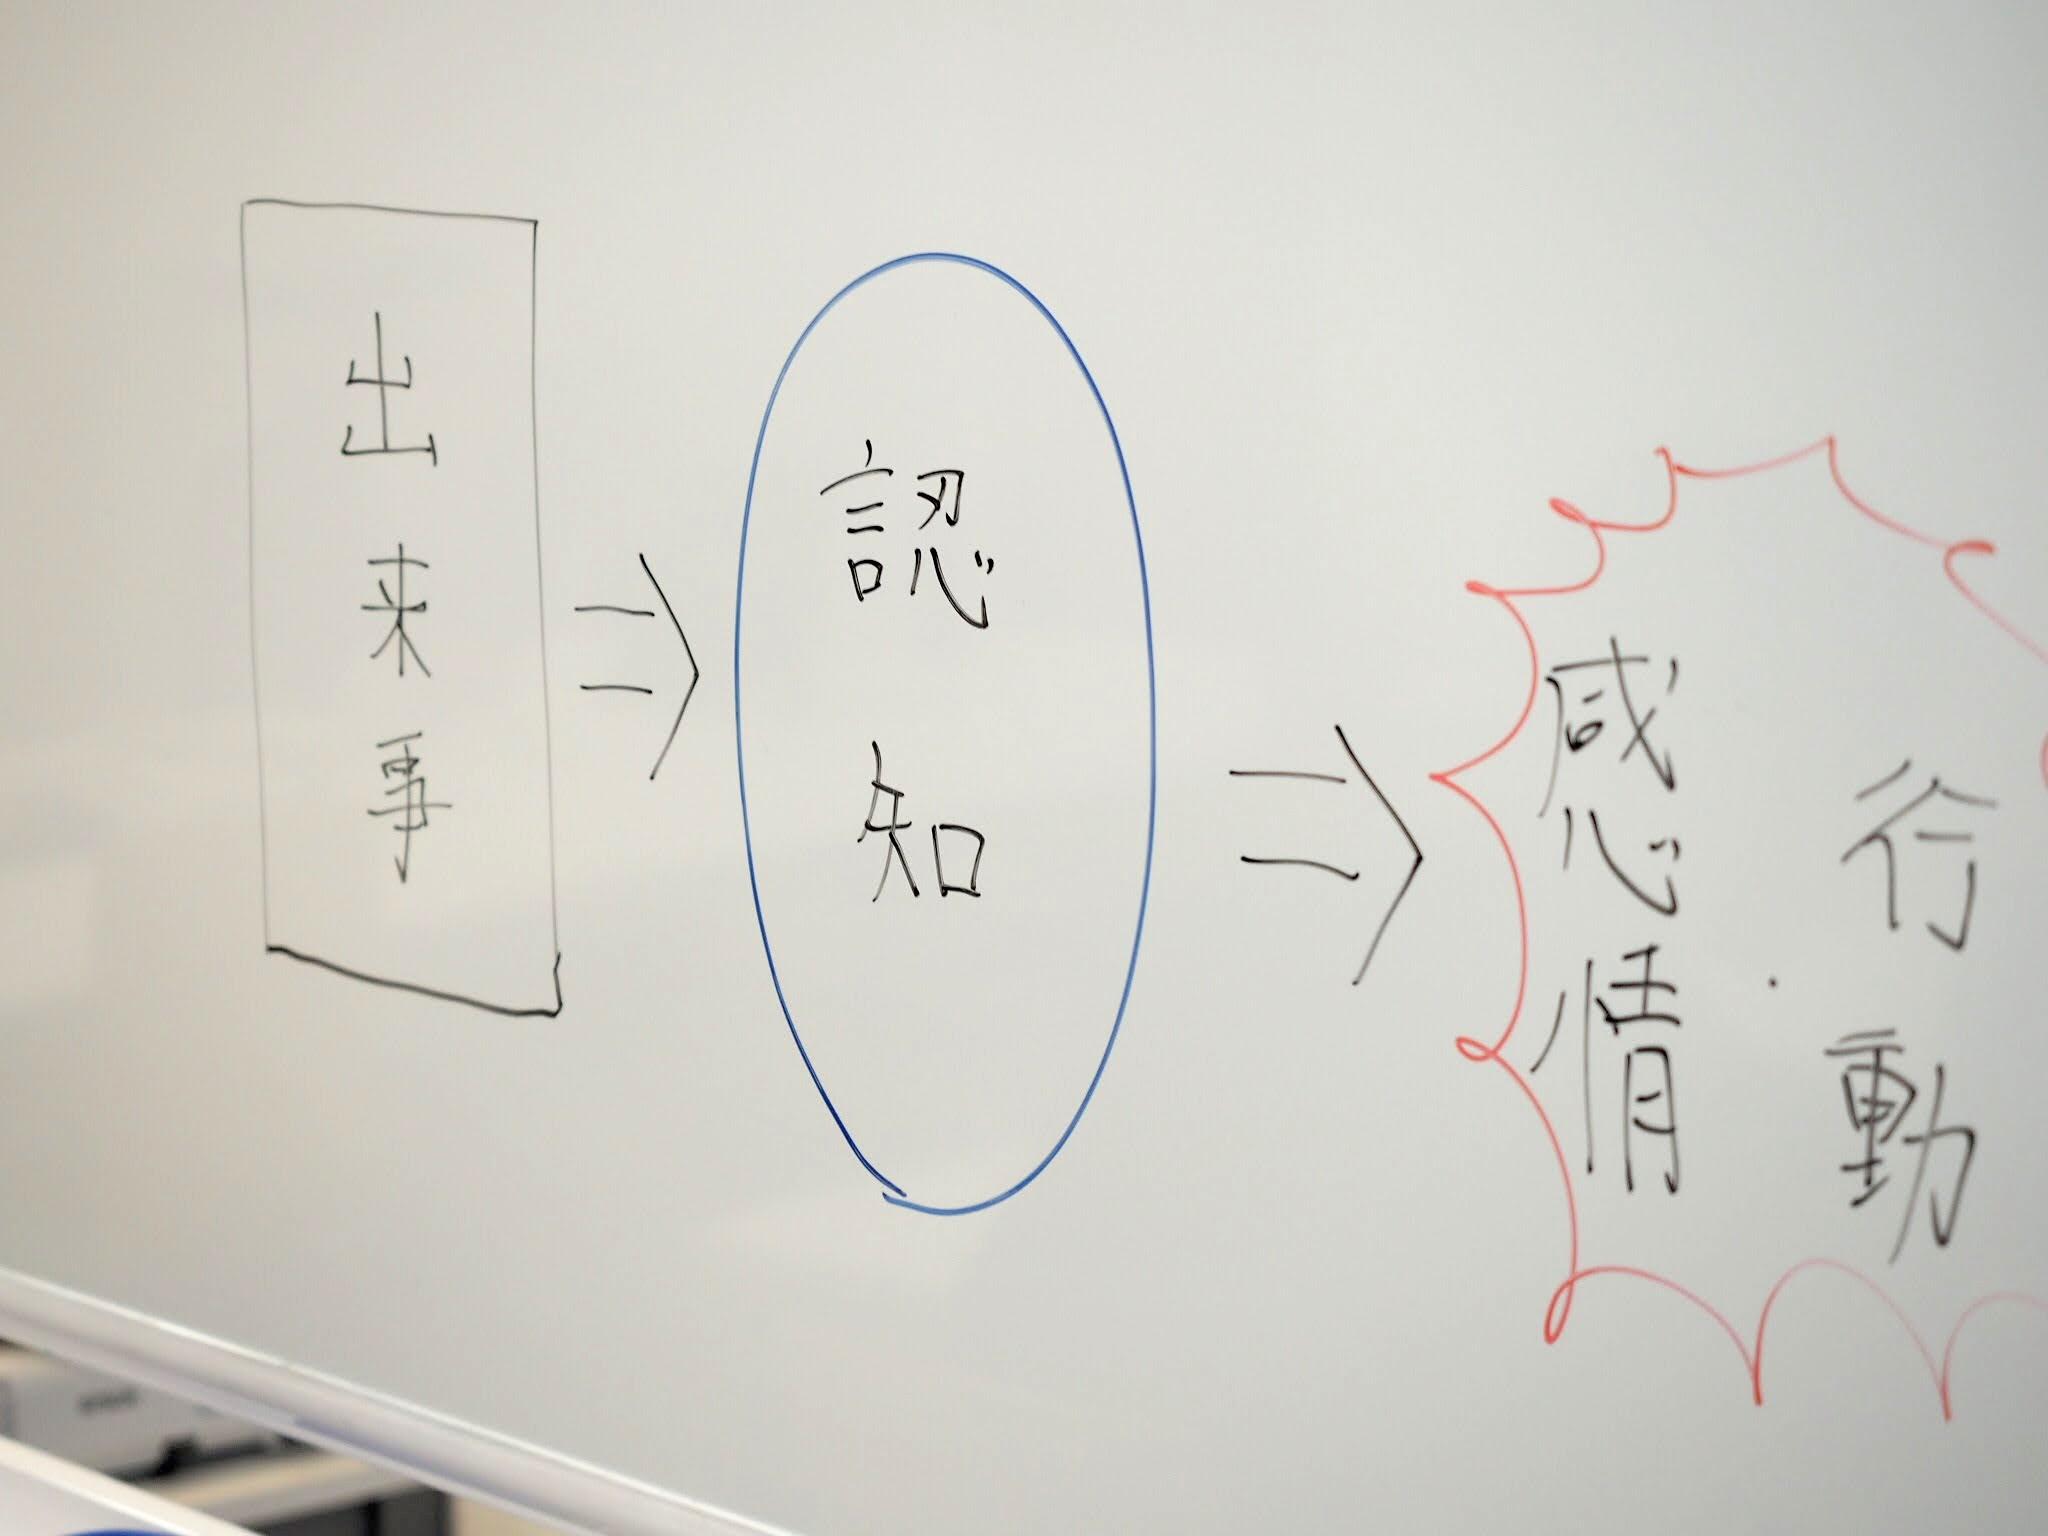 出来事
⇒
認知
⇒
感情
・
行動